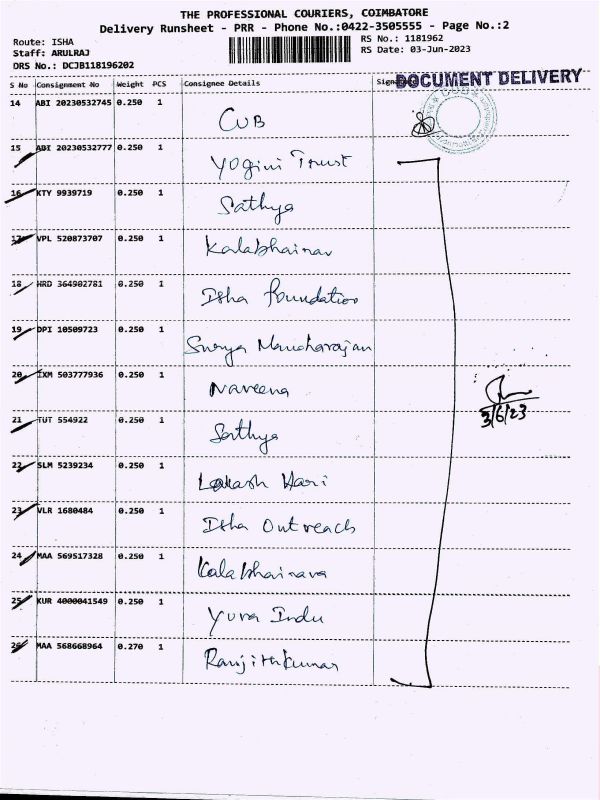 THE PROFESSIONAL COURIERS, COIMBATORE
Delivery Runsheet - PRR - Phone No.:0422-3505555 - Page No.:2
Route: ISHA
RS No.: 1181962
Staff: ARULRAJ
RS Date: 03-Jun-2023
DRS No.: DCJB118196202
DOCUMENT DELIVERY
S No Consignment No Weight PCS Consignee Details
14 ABI 20230532745 0.250 1 CUB
15 ABI 20230532777 0.250 1 Yogini Trust
16 KTY 9939719 0.250 1 Sathya
17 VPL 520873707 0.250 1 Kalabhairav
18 HRD 364902781 0.250 1 Isha Foundation
19 DPI 10509723 0.250 1 Surya Manoharajan
20 IXM 503777936 0.250 1 Naveena
3/6/23
21 TUT 554922 0.250 1 Sathya
22 SLM 5239234 0.250 1 Lokash Hari
23 VLR 1680484 0.250 1 Isha Outreach
24 MAA 569517328 0.250 1 Kalabhairava
25 KUR 4000041549 0.250 1 Yuva Indu
26 MAA 568668964 0.270 1 Ranjithkumar